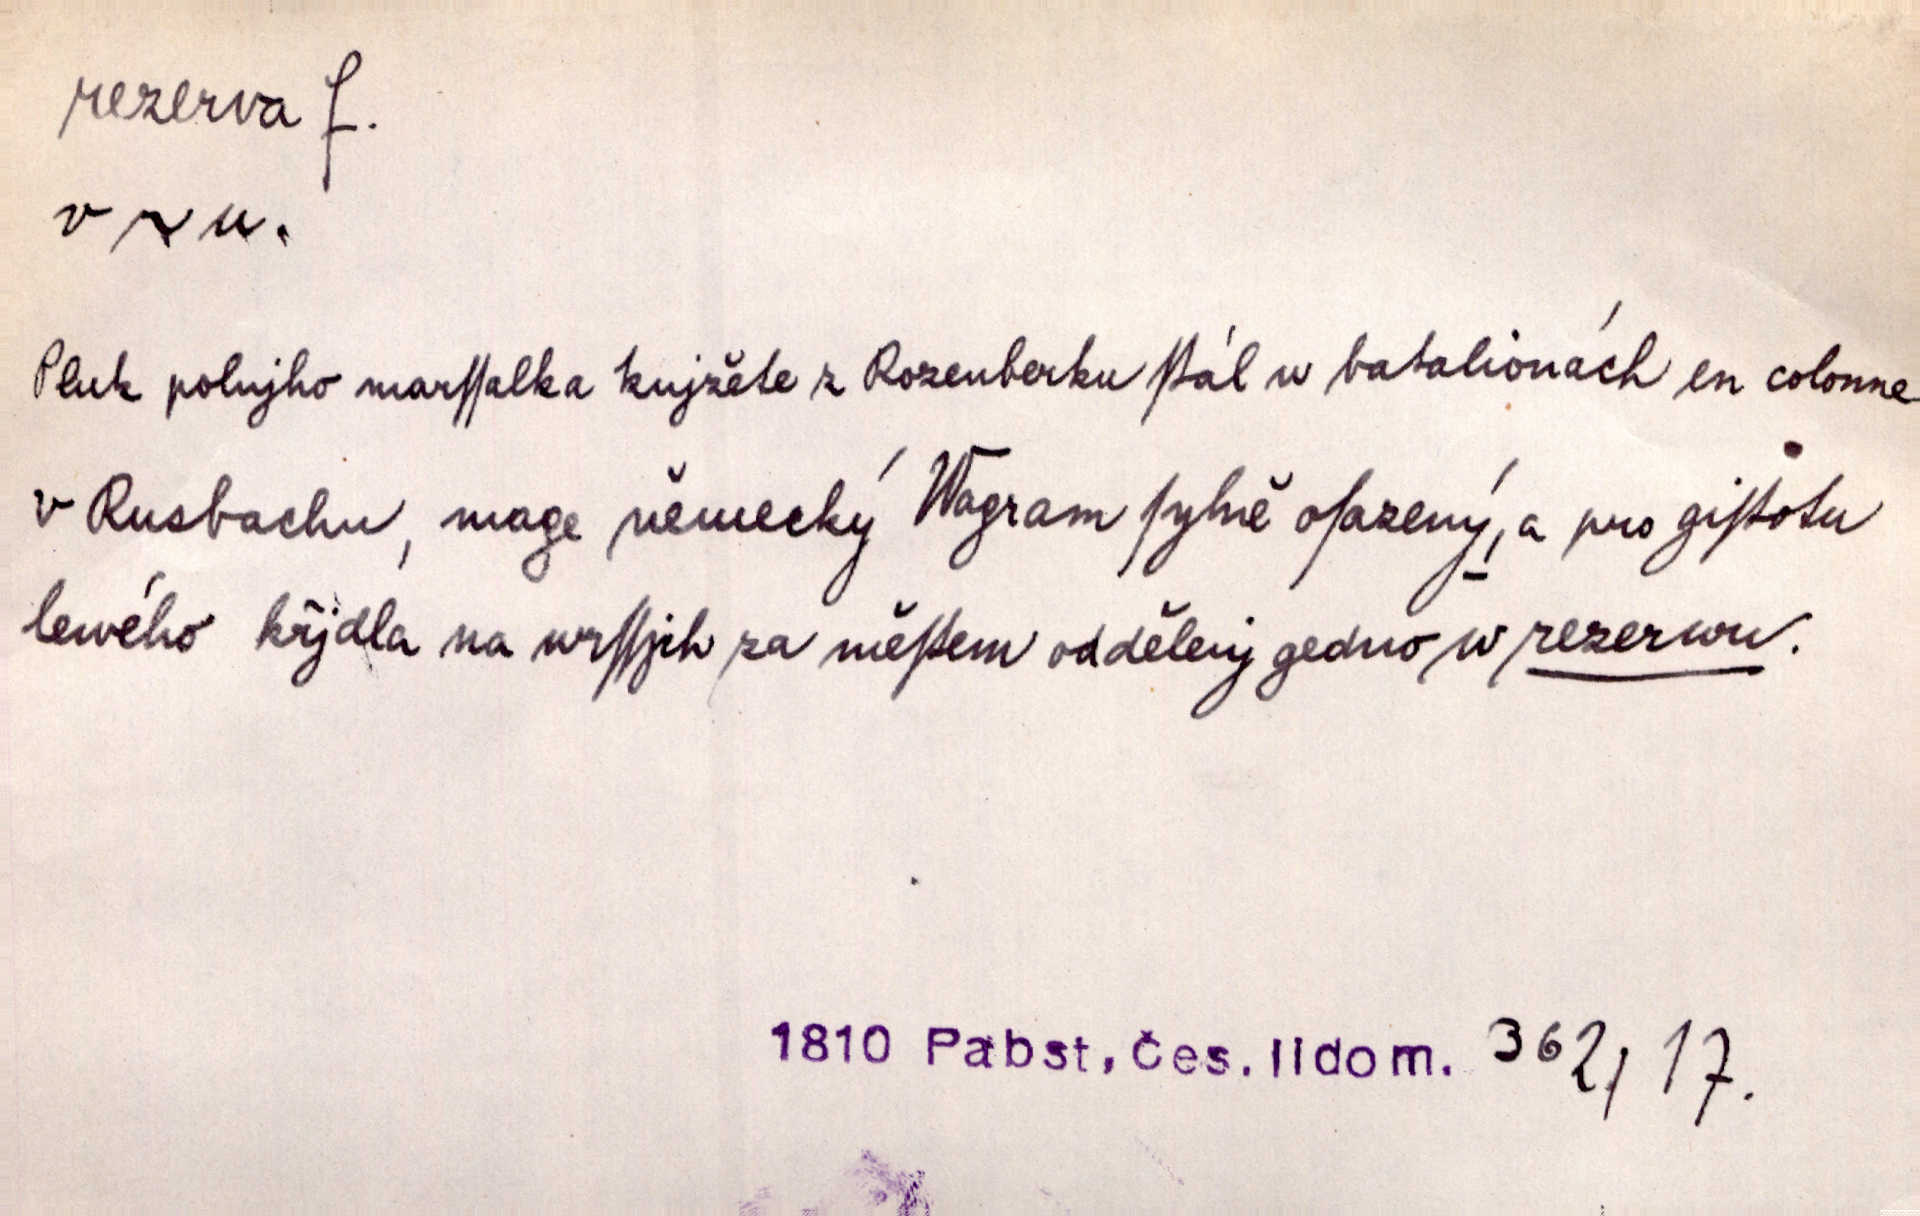 rezerva f.
v ~ u.
Pluk polnjho marſſalka knjžěte z Rozenberku ſtál w batalionách en colonne
v Rusbachu, mage německý Wagram ſylně oſazený, a pro giſtotu
lewého křjdla na wrſſjch za měſtem oddělenj gedno w rezerwu.
1810 Pabst, čes. lidom. 362, 17.